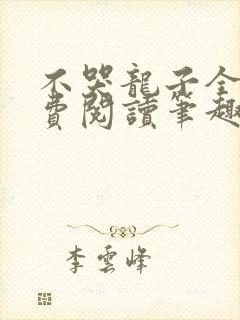 不哭龍子全
費閱讀筆趣
李雲峰